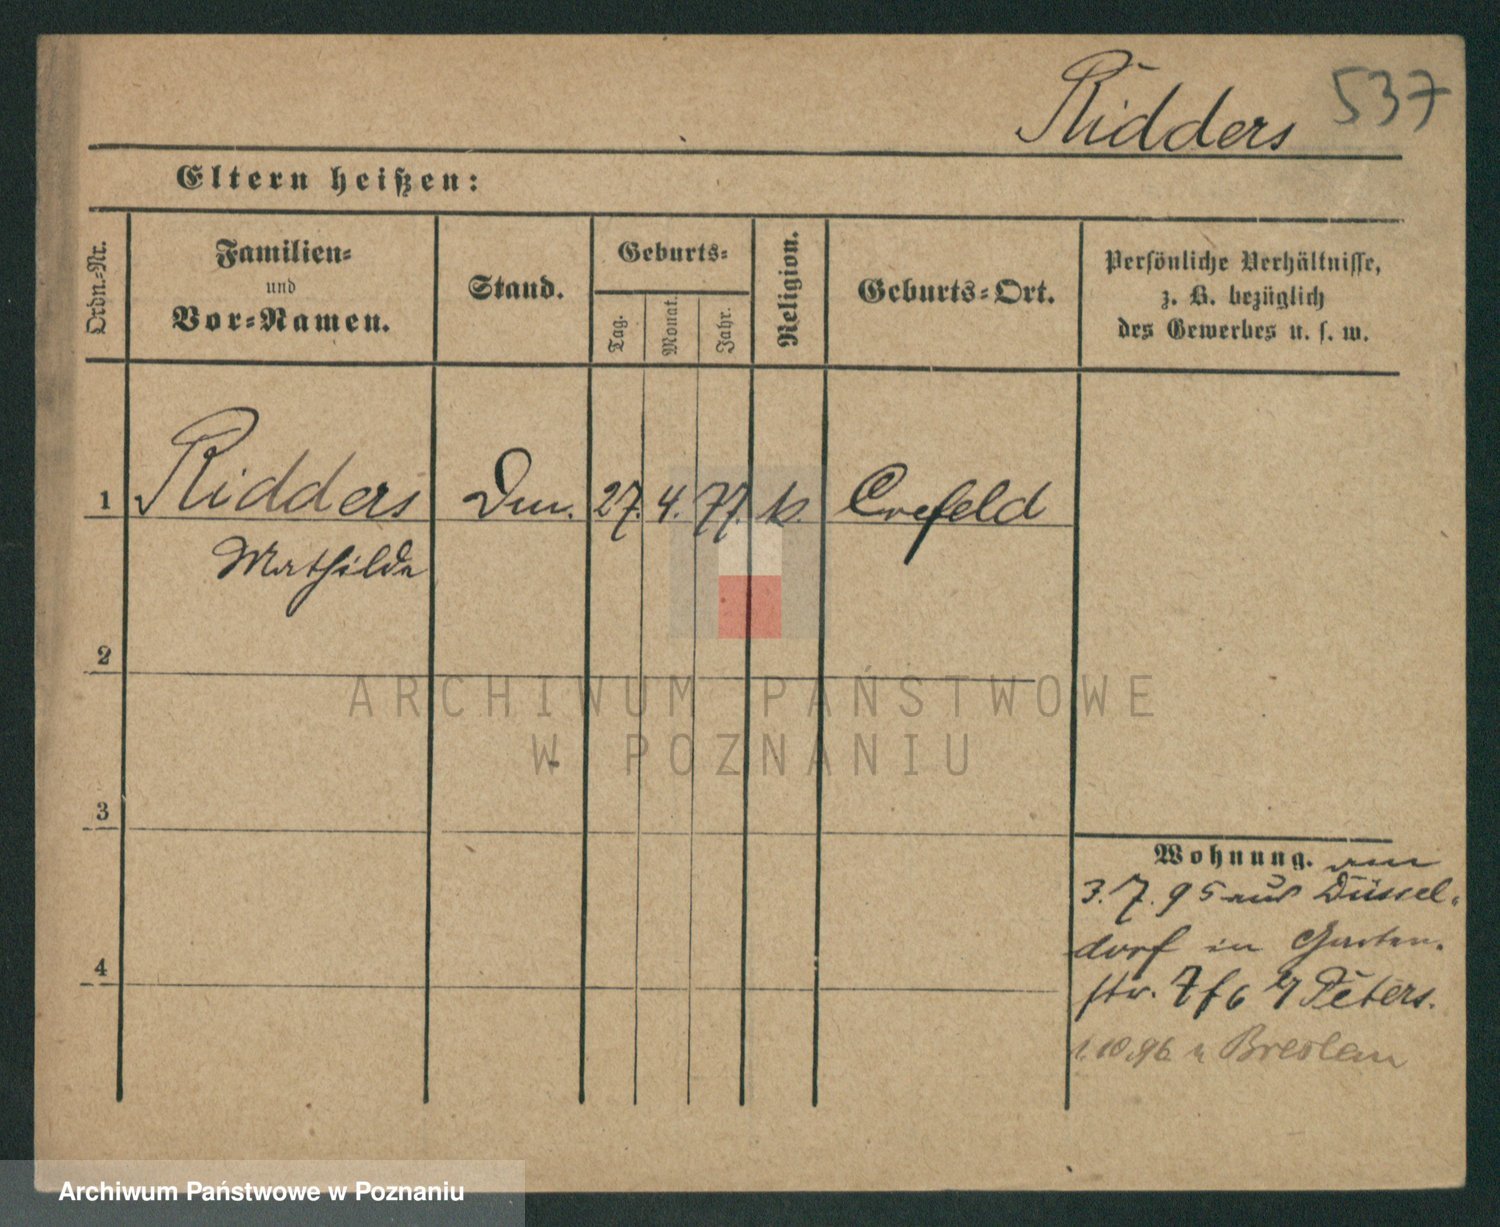 Ridders 537
Eltern heißen:
Ordn.-Nr.
Familien-
und
Vor-Namen.
Stand.
Geburts-
Tag.
Monat.
Jahr.
Religion.
Geburts-Ort.
Persönliche Verhältnisse,
z. B. bezüglich
des Gewerbes u. s. w.
1 Ridders 27. 4. 77. k. Crefeld
Mathilde
2
3
4
Wohnung. am
3.7.95 aus Düssel-
dorf in Garten-
str. Peters.
1.10.96 n Breslau
ARCHIWUM PAŃSTWOWE
W POZNANIU
Archiwum Państwowe w Poznaniu